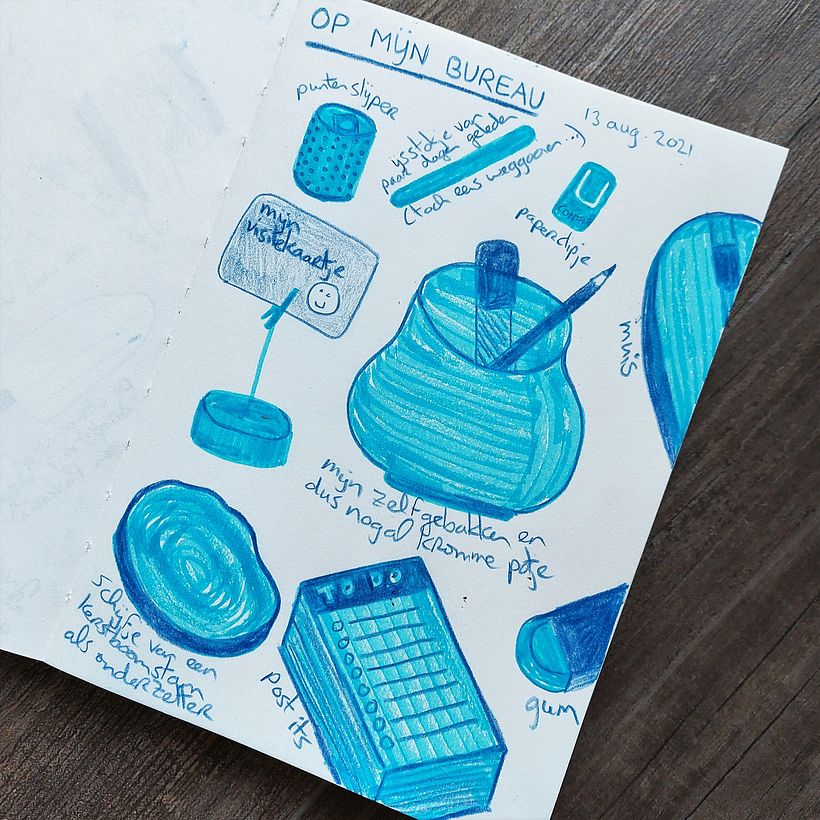 OP MIJN BUREAU
13 aug. 2021
puntenslijper
ijsstokje van
paar dagen geleden
(toch eens weggooien...)
paperclipje
mijn
visitekaartje
muis
mijn zelfgebakken en
dus nogal kromme potje
schijfje van een
kerstboomstam
als onderzetter
TO DO
post its
gum